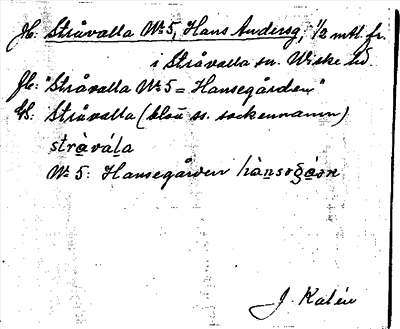 Jb: Stråvalla № 5, Hans Andersg, 1/2 mtl. fr.
i Stråvalla sn. Wiske hd.
Jb: "Stråvalla № 5 = Hansegården"
Us. Stråvalla (blott ss. sockennamn)
stràvála
№ 5: Hansegården
J. Kalén